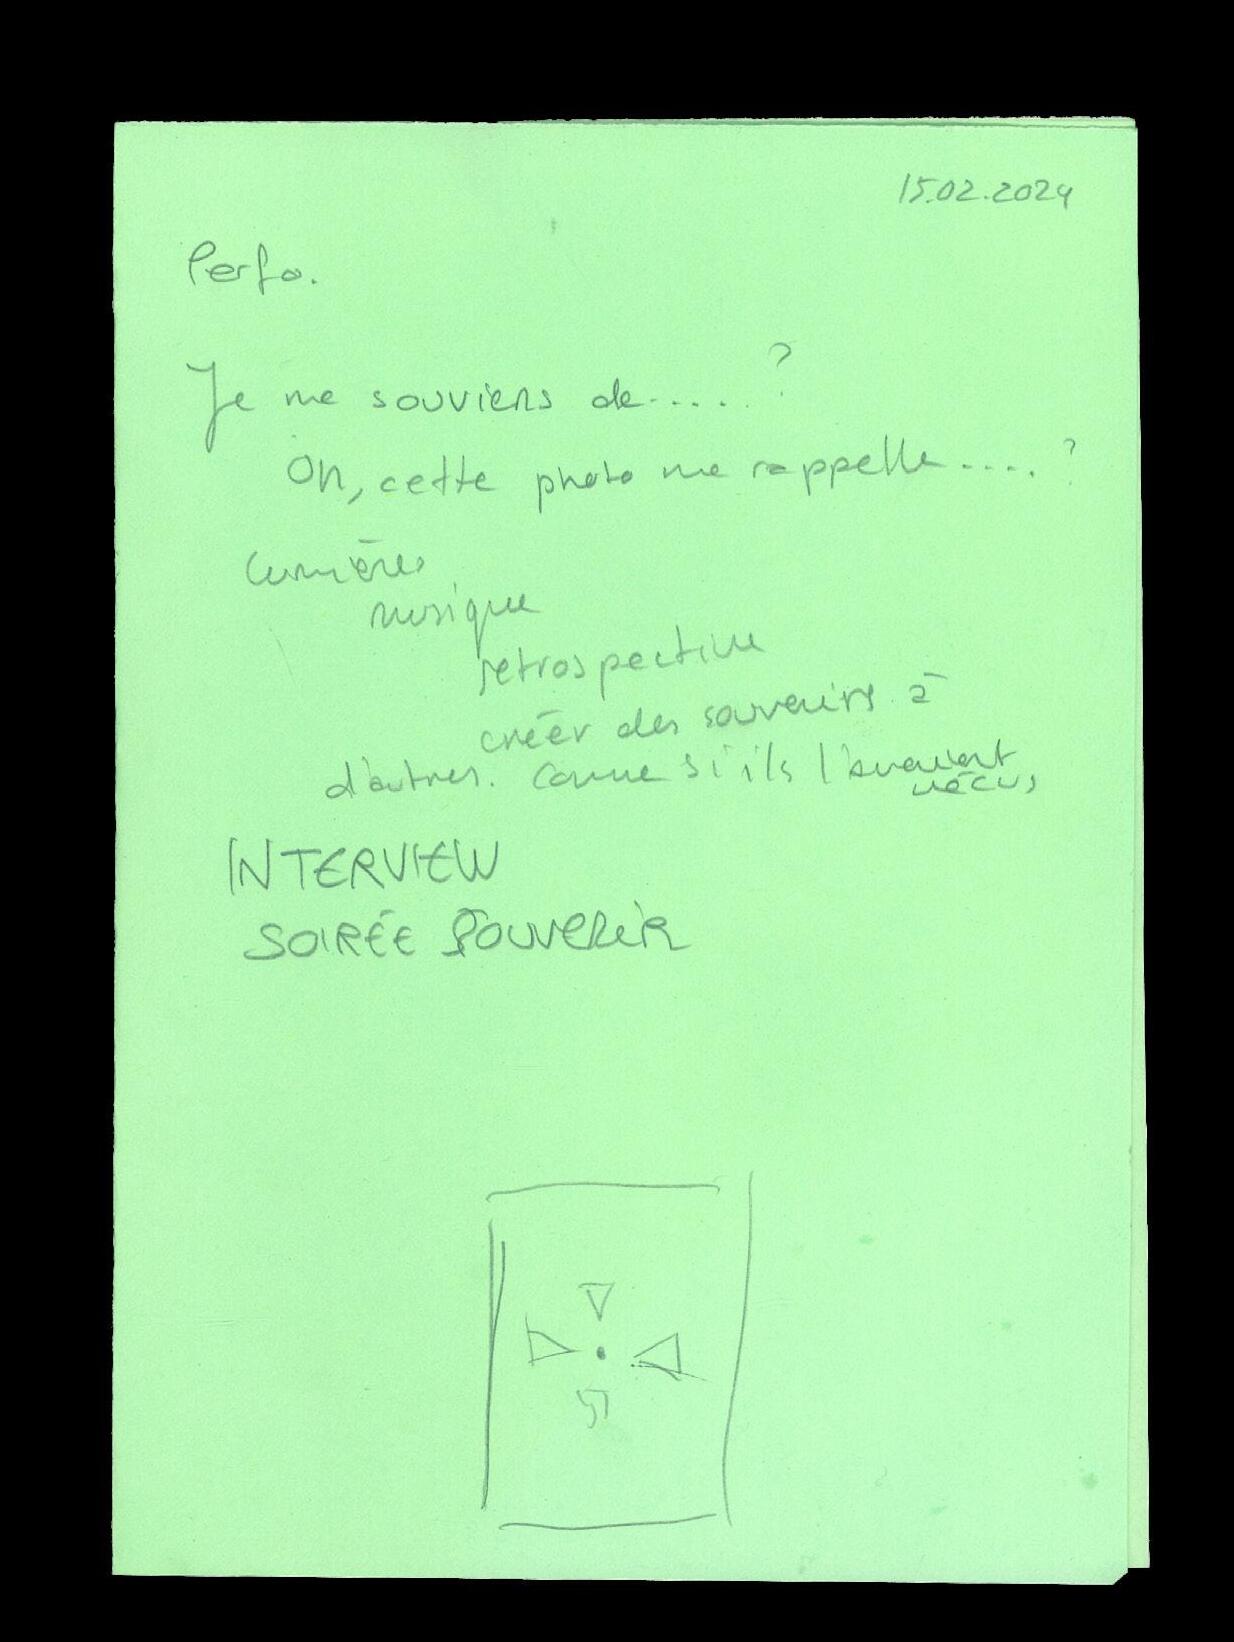 15.02.2024
Perfo.
Je me souviens de..... ?
Oh, cette photo me rappelle..... ?
Lumières
musique
retrospective
créer des souvenirs à
d'autres. Comme si ils l'avaient
vécus
INTERVIEW
SOIRÉE SOUVENIR